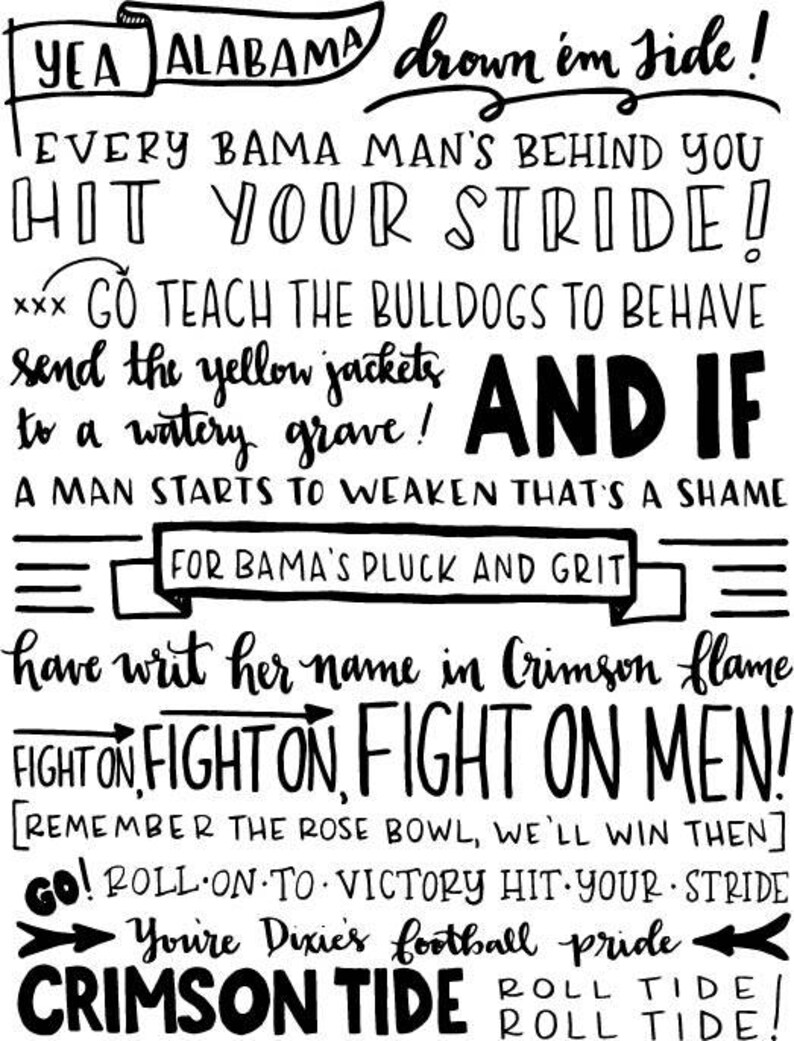 YEA ALABAMA drown 'em tide!
EVERY BAMA MAN'S BEHIND YOU
HIT YOUR STRIDE!
xxx GO TEACH THE BULLDOGS TO BEHAVE
send the yellow jackets
to a watery grave! AND IF
A MAN STARTS TO WEAKEN THAT'S A SHAME
FOR BAMA'S PLUCK AND GRIT
have writ her name in Crimson flame
FIGHT ON, FIGHT ON, FIGHT ON MEN!
[REMEMBER THE ROSE BOWL, WE'LL WIN THEN]
GO! ROLL·ON·TO·VICTORY HIT·YOUR·STRIDE
You're Dixie's football pride
CRIMSON TIDE ROLL TIDE!
ROLL TIDE!